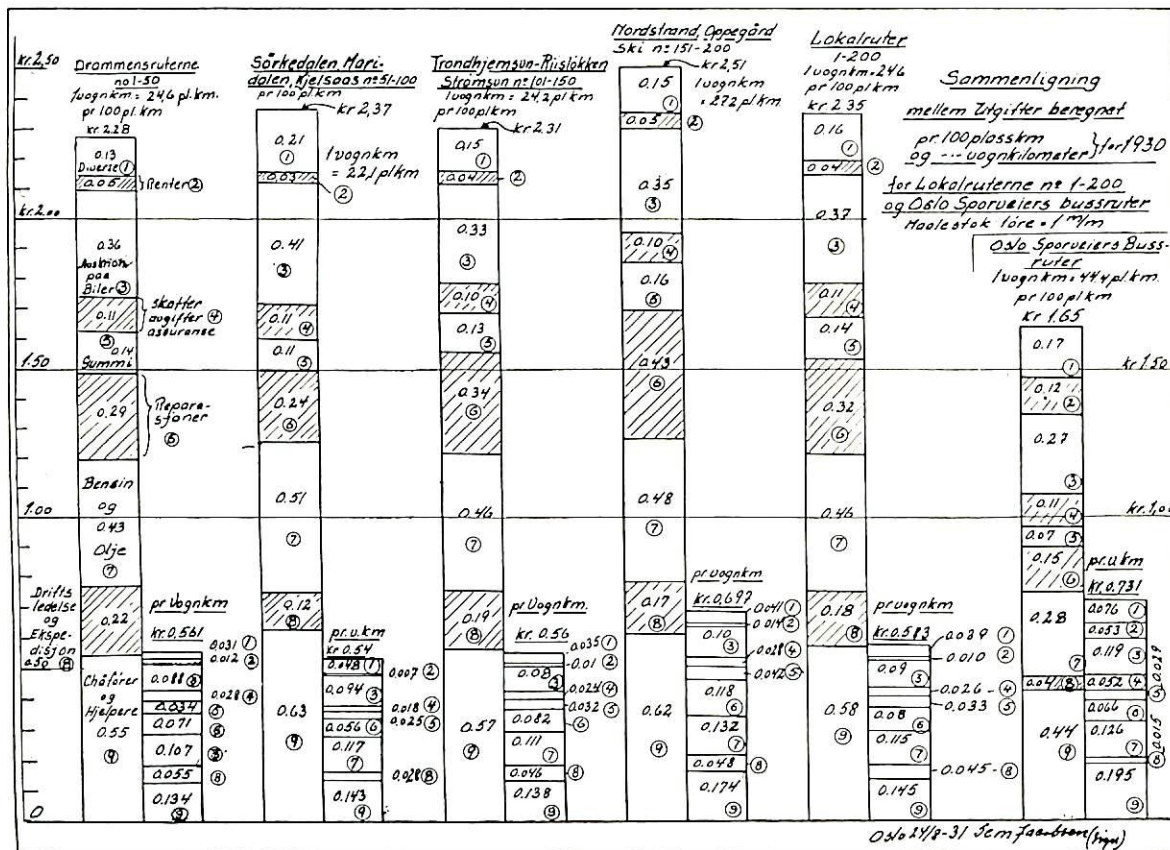 kr. 2,50
kr. 2.00
1.50
1.00
0.50
0
Drammensruterne
no 1-50
1 vognkm = 24,6 pl.km.
pr 100 pl. km
kr. 2.28
0.13
Diverse ①
0.05
Renter ②
0.36
paa
Biler ③
0.11
Skatter
avgifter ④
assurance
⑤
0.14
Gummi
0.29
Repara-
sjoner
⑥
Bensin
og
0.43
Olje
⑦
Drifts
ledelse
og
Ekspe-
disjon
⑧
0.22
Chåförer
og
Hjelpere
0.55
⑨
pr Vognkm
kr. 0.561
0.031 ①
0.012 ②
0.088 ③
0.028 ④
0.034 ⑤
0.071 ⑥
0.107
0.055 ⑧
0.134
⑨
Sörkedalen, Mari-
dalen, Kjelsaas no 51-100
pr 100 pl km
kr 2,37
1 vognkm
= 22,1 pl km
0.21
①
0.03
②
0.41
③
0.11
④
0.11
⑤
0.24
⑥
0.51
⑦
0.12
⑧
0.63
⑨
pr. v. km
kr 0.54
0.048 ①
0.007 ②
0.094 ③
0.018 ④
0.025 ⑤
0.056 ⑥
0.117
⑦
0.028 ⑧
0.143
⑨
Trondhjemsvn-Riislökken
Strömsvn no 101-150
1 vognkm = 24,2 pl km
pr 100 pl km
kr 2,31
0.15
①
0.04
②
0.33
③
0.10
④
0.13
⑤
0.34
⑥
0.46
⑦
0.19
⑧
0.57
⑨
pr Vognkm.
kr. 0.56
0.035 ①
0.01 ②
0.08
③
0.024 ④
0.032 ⑤
0.082
⑥
0.111
⑦
0.046 ⑧
0.138
⑨
Nordstrand, Oppegård
Ski no 151-200
kr 2,51
1 vognkm
= 27,2 pl km
0.15
①
0.05
②
0.35
③
0.10
④
0.16
⑤
0.43
⑥
0.48
⑦
0.17
⑧
0.62
⑨
pr vognkm
kr. 0,697
0.041 ①
0.014 ②
0.10
③
0.028 ④
0.042 ⑤
0.118
⑥
0.132
⑦
0.048 ⑧
0.174
⑨
Lokalruter
1-200
1 vognkm = 24.6
pr 100 pl km
kr 2.35
0.16
①
0.04
②
0.37
③
0.11
④
0.14
⑤
0.32
⑥
0.46
⑦
0.18
⑧
0.58
⑨
pr vognkm
kr. 0.583
0.039 ①
0.010 ②
0.09
③
0.026 - ④
0.033 ⑤
0.08
⑥
0.115
⑦
0.045 - ⑧
0.145
⑨
Sammenligning
mellem Utgifter beregnat
pr. 100 plasskm
og --- vognkilometer } for 1930
for Lokalruterne no 1-200
og Oslo Sporveiers bussruter
Maalestok 1 öre = 1 m/m
Oslo Sporveiers Buss-
ruter
1 vognkm = 44,4 pl. km.
pr 100 pl km
Kr 1.65
0.17
①
0.12
②
0.27
③
0.11
④
0.07 ⑤
0.15
⑥
0.28
⑦
0.04 ⑧
0.44
⑨
kr 1.50
kr. 1,00
pr. v. km
kr. 0.731
0.076 ①
0.053 ②
0.119 ③
0.052 ④
0.029
⑤
0.066
⑥
0.126
⑦
0.015
⑧
0.195
⑨
Oslo 24/8-31 Sem Jacobsen (sign)